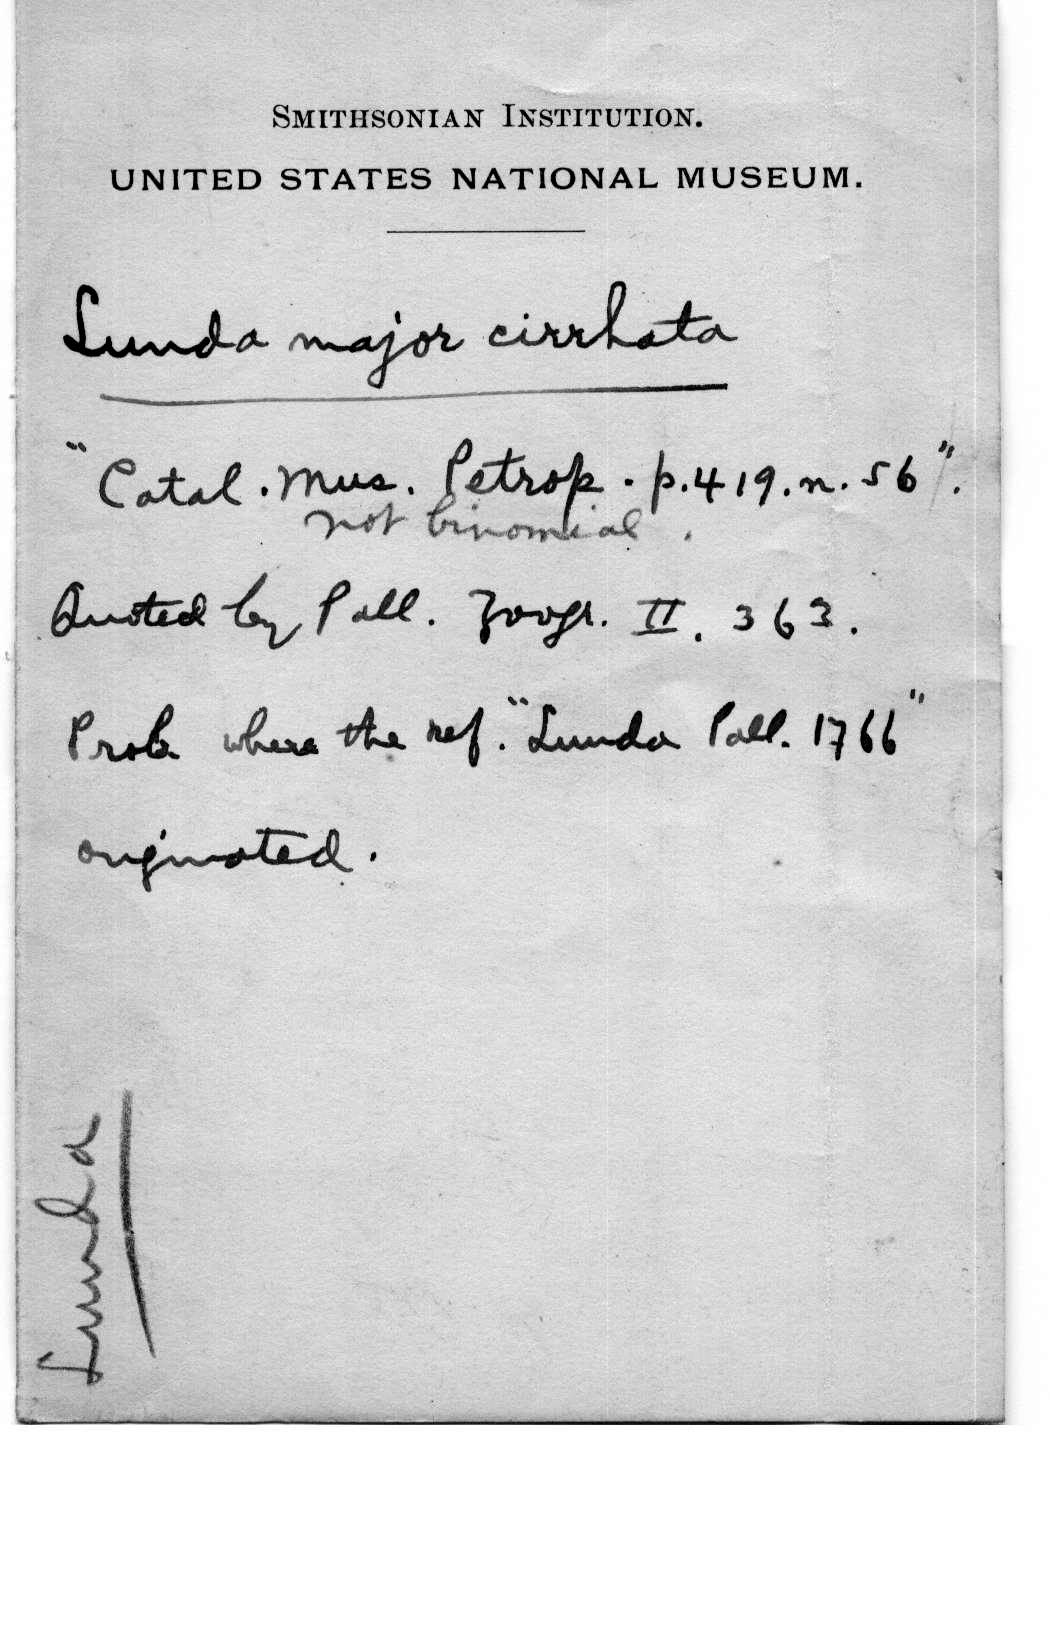 SMITHSONIAN INSTITUTION.
UNITED STATES NATIONAL MUSEUM.
Lunda major cirrhata
"Catal. Mus. Petrop. p. 419. n. 56".
not binomial.
Quoted by Pall. Zoogr. II. 363.
Prob. where the ref. "Lunda Pall. 1766"
originated.
Lunda